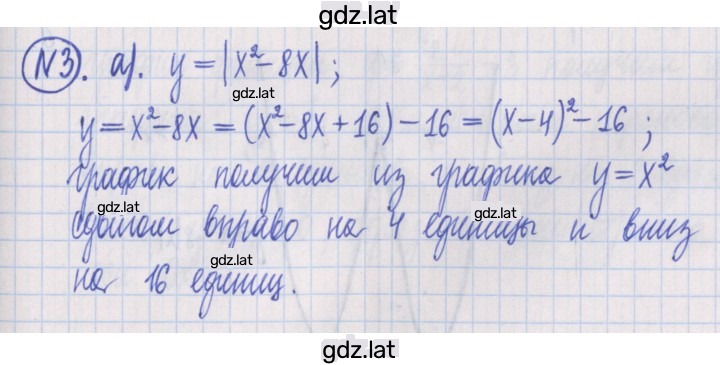 gdz.lat
№3. а). y = |x² - 8x| ;
gdz.lat
y = x² - 8x = (x² - 8x + 16) - 16 = (x - 4)² - 16 ;
gdz.lat
График получим из графика y = x²
gdz.lat gdz.lat
сдвигом вправо на 4 единицы и вниз
gdz.lat
на 16 единиц.
gdz.lat